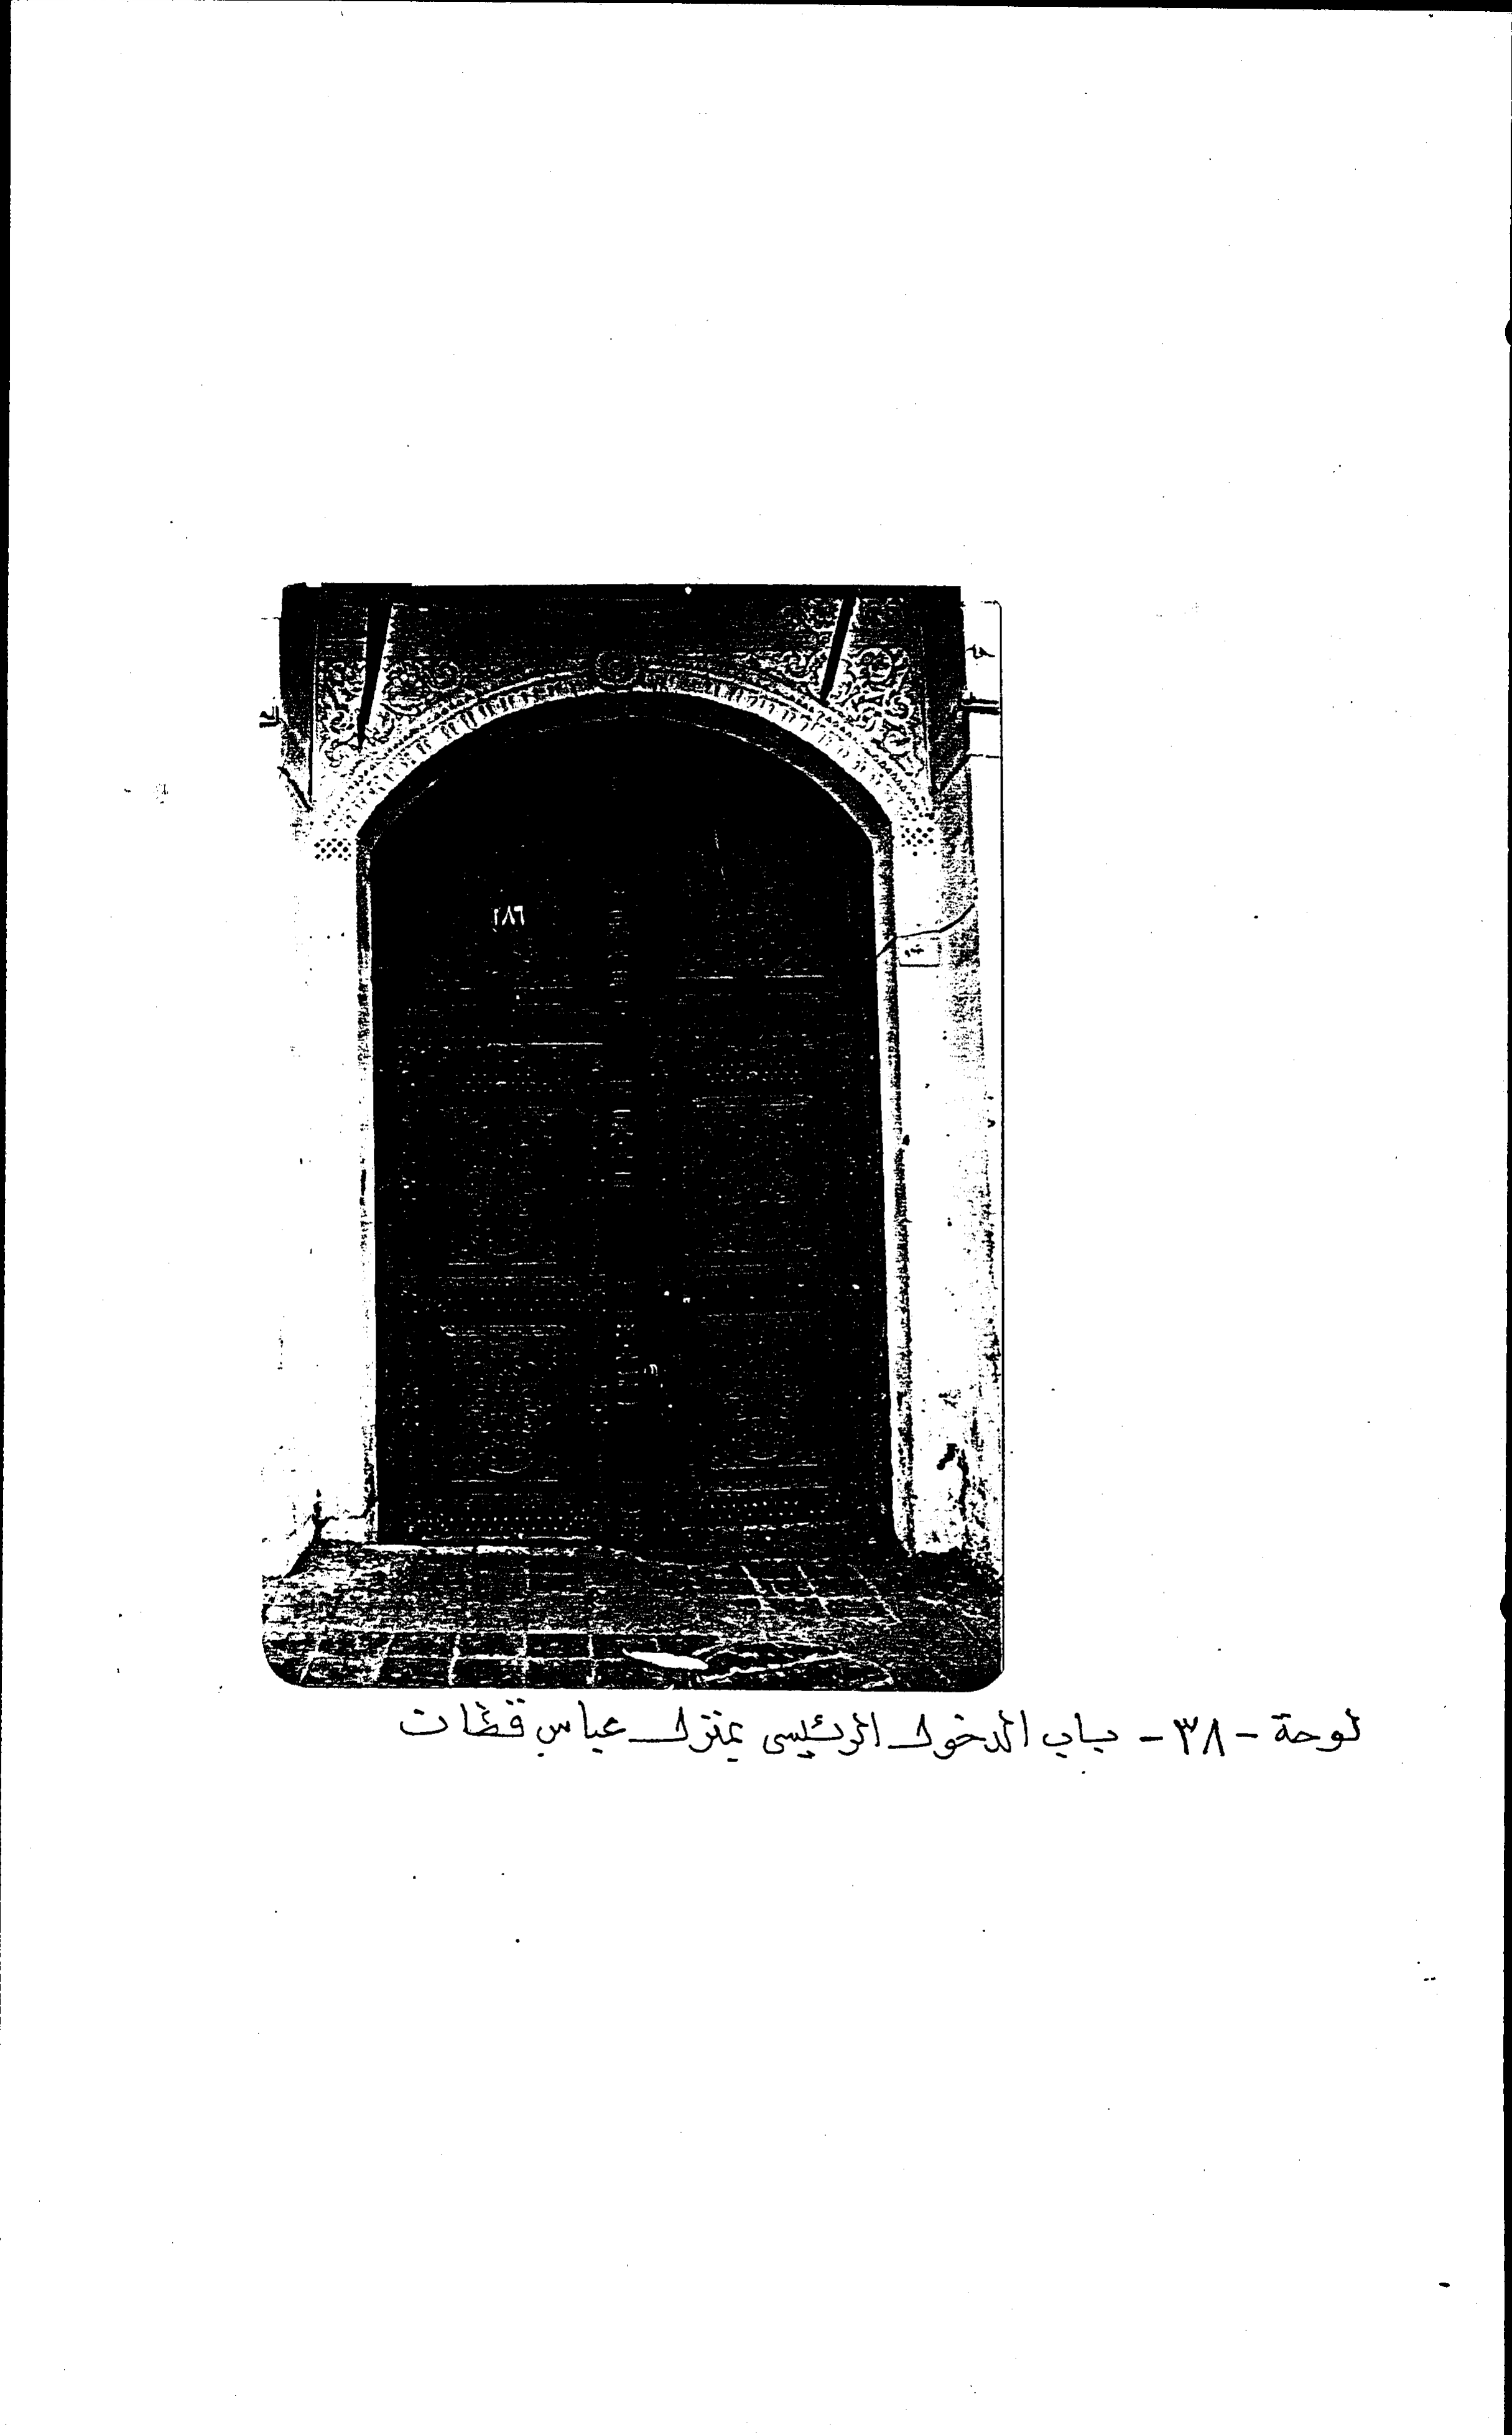 ٢٨٦
لوحة - ٣٨ - باب الدخول الرئيسى بمنزل عباس قطان